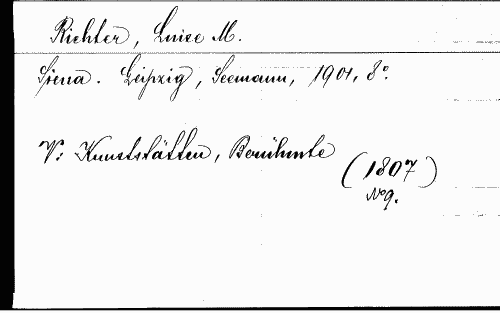 Richter, Luise M.
Siena. Leipzig, Seemann, 1901, 8°.
V: Kunststätten, Berühmte
(1807)
No 9.